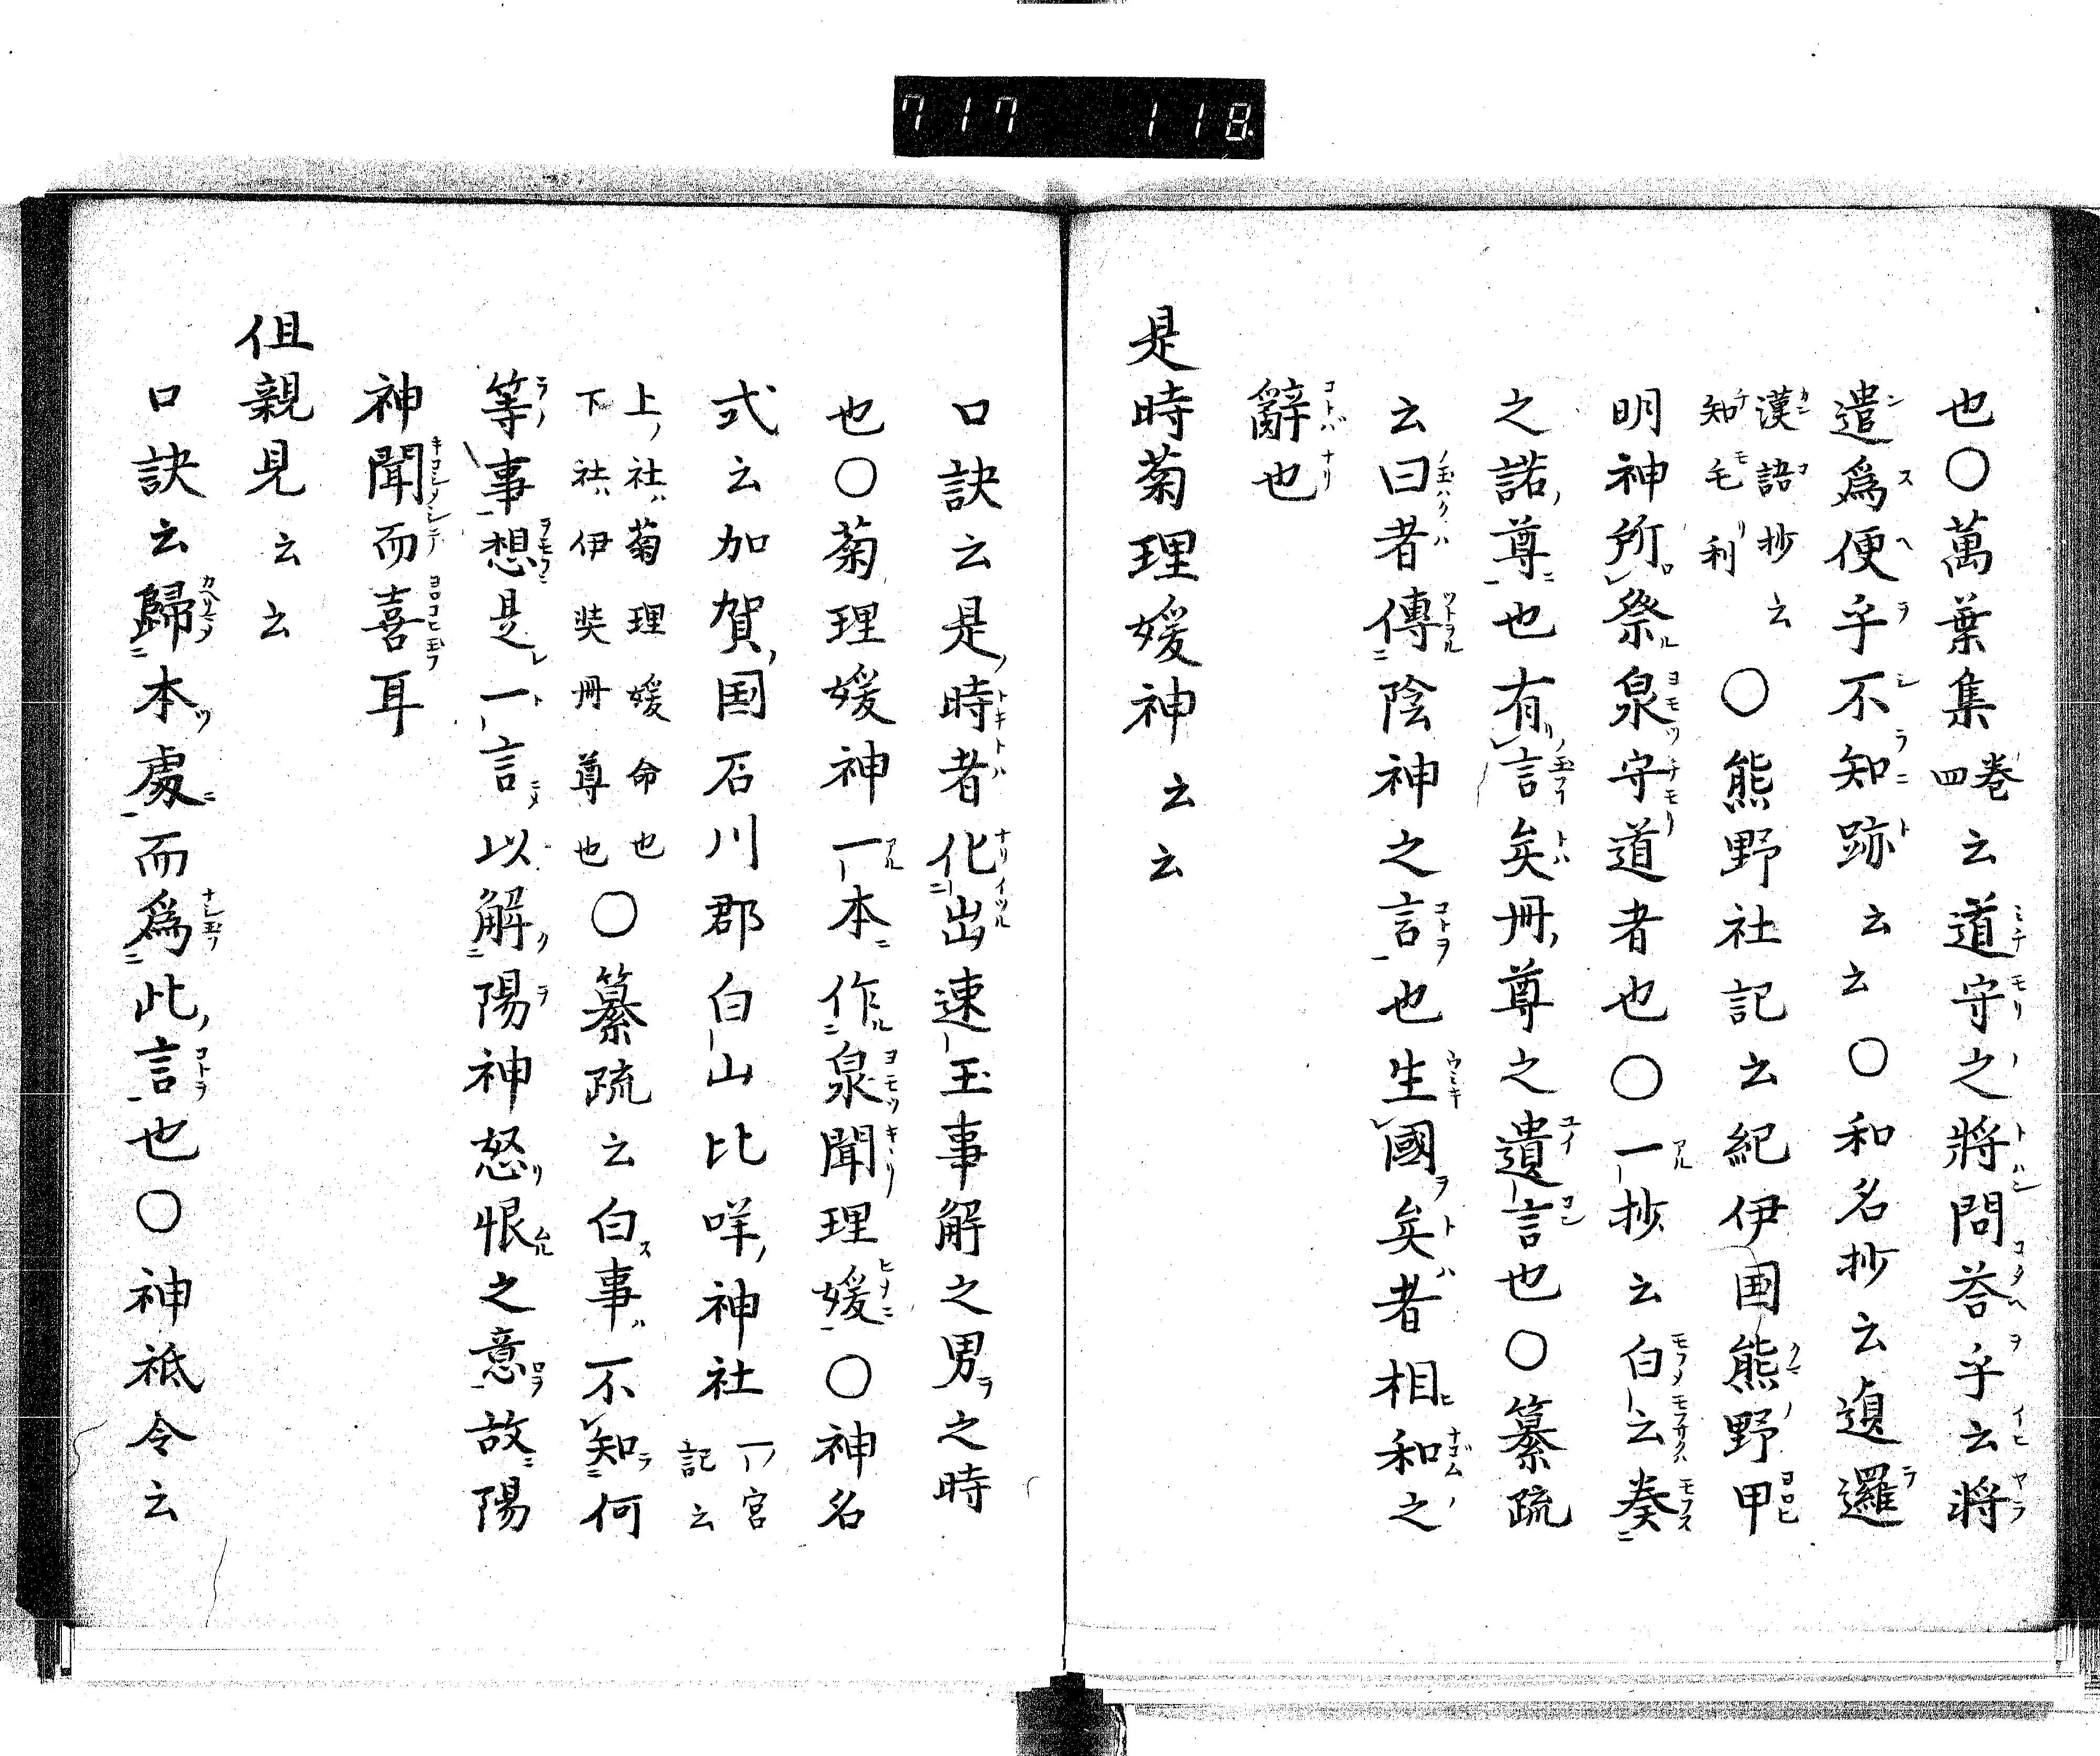 717 118
也○萬葉集巻四云道守之將問荅乎云將
遣爲便乎不知跡云云○和名抄云遉邏
漢語抄云知毛利○熊野社記云紀伊国熊野甲
明神所祭泉守道者也○一抄云白云奏
之諾尊也有言矣冊尊之遺言也○纂疏
云曰者傳陰神之言也生國矣者相和之
辭也
是時菊理媛神云云
口訣云是時者化出速玉事解之男之時
也○菊理媛神一本作泉聞理媛○神名
式云加賀国石川郡白山比咩神社一宮記云
上社菊理媛命也下社伊奘冊尊也○纂疏云白事不知何
等事想是一言以解陽神怒恨之意故陽
神聞而喜耳
但親見云云
口訣云歸本處而爲此言也○神祇令云